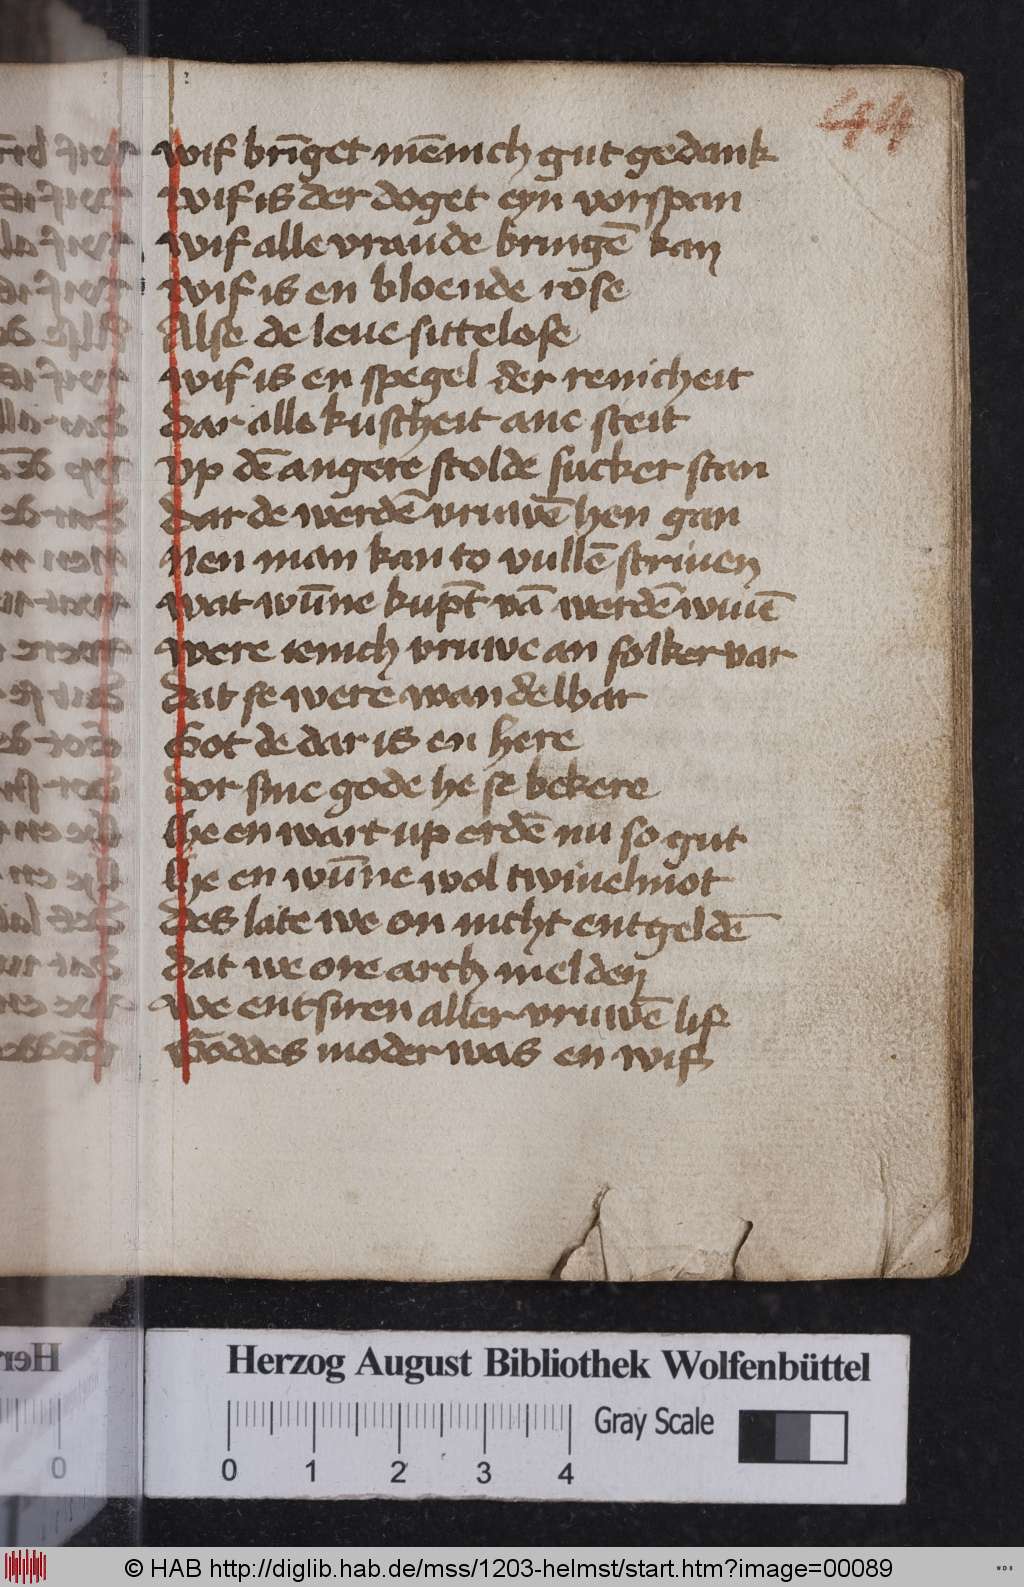 44
wif brīget mēnich gut gedank
wif is der doget eyn vorspan
wif alle vraude bringē kan
wif is en bloende rose
Alse de leue sittelose
wif is en spegel der renicheit
dar alle kuscheit ane steit
vp dē angere stolde sucker stan
dar de werdē vruwē hen gan
Nen man kan to vullē scriuen
wat wūne kupt vā werdē wiuē
were ienich vruwe an solker var
dat se were wandelbar
Got de dar is en here
dor sine gode he se bekere
he en wart up erdē nu so gut
he en wūne wol twiuelmot
des late we on nicht entgeldē
dat we ore arch melden
we entsiren aller vruwē lif
Goddes moder was en wif
Herzog August Bibliothek Wolfenbüttel
0 1 2 3 4 Gray Scale
© HAB http://diglib.hab.de/mss/1203-helmst/start.htm?image=00089